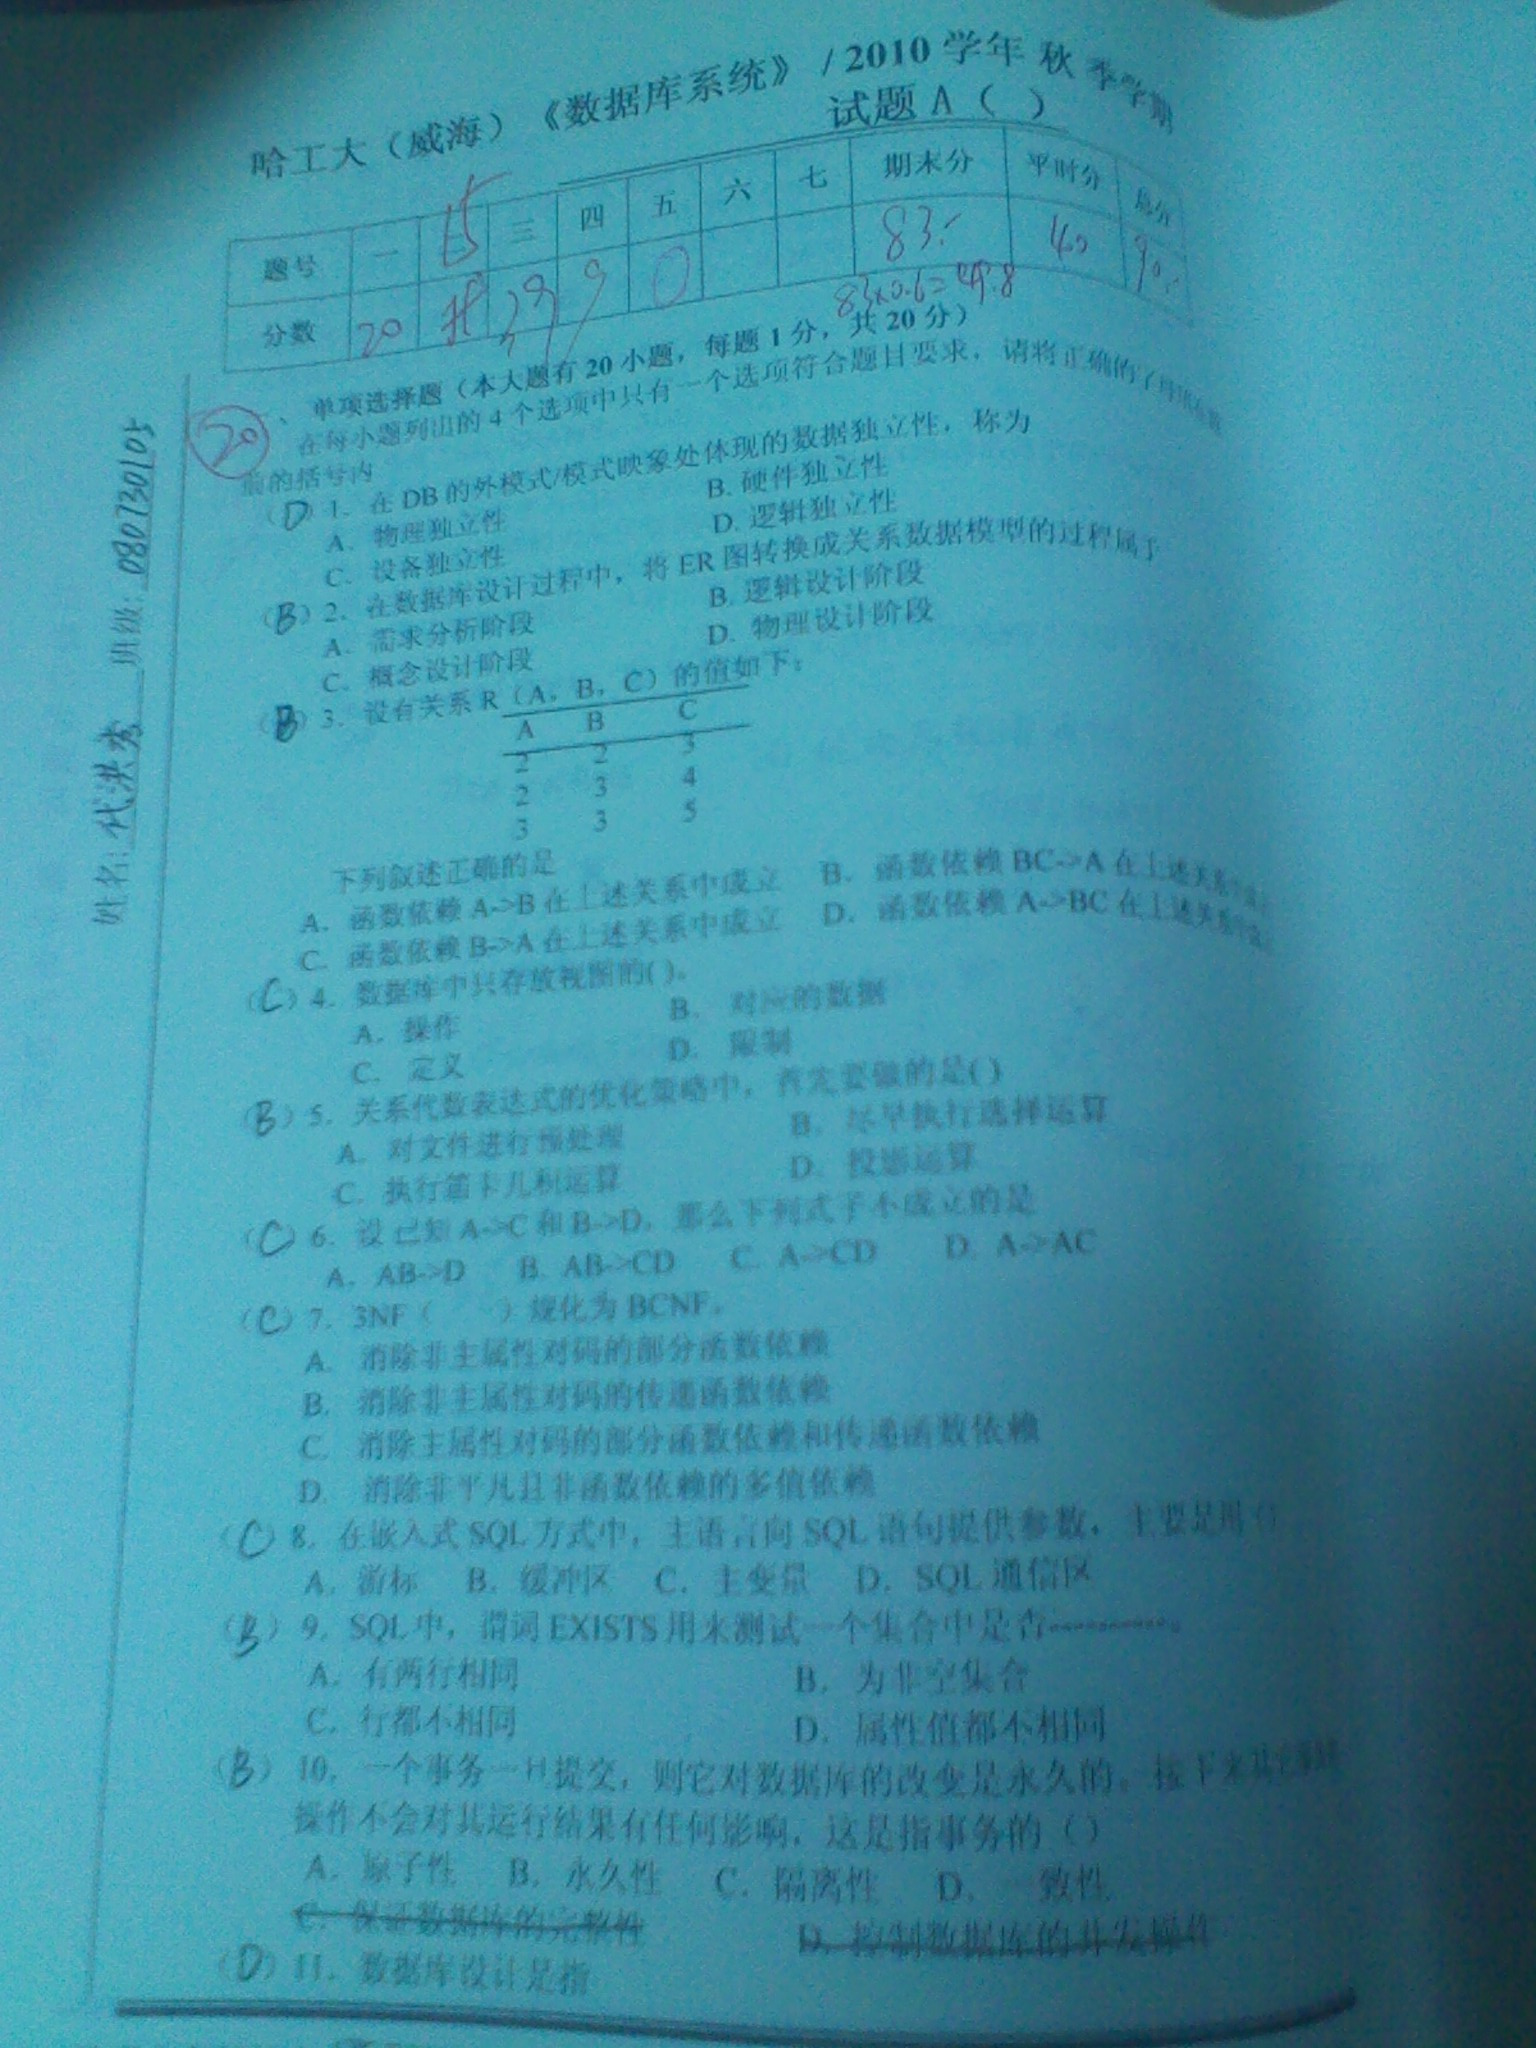 哈工大（威海）《数据库系统》 / 2010 学年 秋 季学期
试题 A（ ）
题号 一 15 三 四 五 六 七 期末分 平时分 总分
分数 20 39 9 0 83 40 90
83×0.6=49.8
20
一、单项选择题（本大题有 20 小题，每题 1 分，共 20 分）
在每小题列出的 4 个选项中只有一个选项符合题目要求，请将正确的
前的括号内
（D）1．在 DB 的外模式/模式映象处体现的数据独立性，称为
A．物理独立性 B. 硬件独立性
C．设备独立性 D. 逻辑独立性
（B）2．在数据库设计过程中，将 ER 图转换成关系数据模型的过程属于
A．需求分析阶段 B. 逻辑设计阶段
C．概念设计阶段 D. 物理设计阶段
（B）3．设有关系 R（A，B，C）的值如下：
A B C
2 2 3
2 3 4
3 3 5
下列叙述正确的是
A．函数依赖 A->B 在上述关系中成立 B．函数依赖 BC->A 在上述关系中成立
C．函数依赖 B->A 在上述关系中成立 D．函数依赖 A->BC 在上述关系中成立
（C）4．数据库中只存放视图的( )。
A．操作 B．对应的数据
C．定义 D．限制
（B）5．关系代数表达式的优化策略中，首先要做的是( )
A．对文件进行预处理 B．尽早执行选择运算
C．执行笛卡儿积运算 D．投影运算
（C）6．设已知 A->C 和 B->D，那么下列式子不成立的是
A．AB->D B. AB->CD C. A->CD D. A->AC
（C）7．3NF（ ）规化为 BCNF。
A．消除非主属性对码的部分函数依赖
B．消除非主属性对码的传递函数依赖
C．消除主属性对码的部分函数依赖和传递函数依赖
D．消除非平凡且非函数依赖的多值依赖
（C）8．在嵌入式 SQL 方式中，主语言向 SQL 语句提供参数，主要是用（）
A．游标 B．缓冲区 C．主变量 D．SQL 通信区
（B）9．SQL 中，谓词 EXISTS 用来测试一个集合中是否…………。
A．有两行相同 B．为非空集合
C．行都不相同 D．属性值都不相同
（B）10．一个事务一旦提交，则它对数据库的改变是永久的。接下来其它
操作不会对其运行结果有任何影响，这是指事务的（）
A．原子性 B．永久性 C．隔离性 D．一致性
C．保证数据库的完整性 D．控制数据库的并发操作
（D）11．数据库设计是指
姓名：代洪 班级：080730105